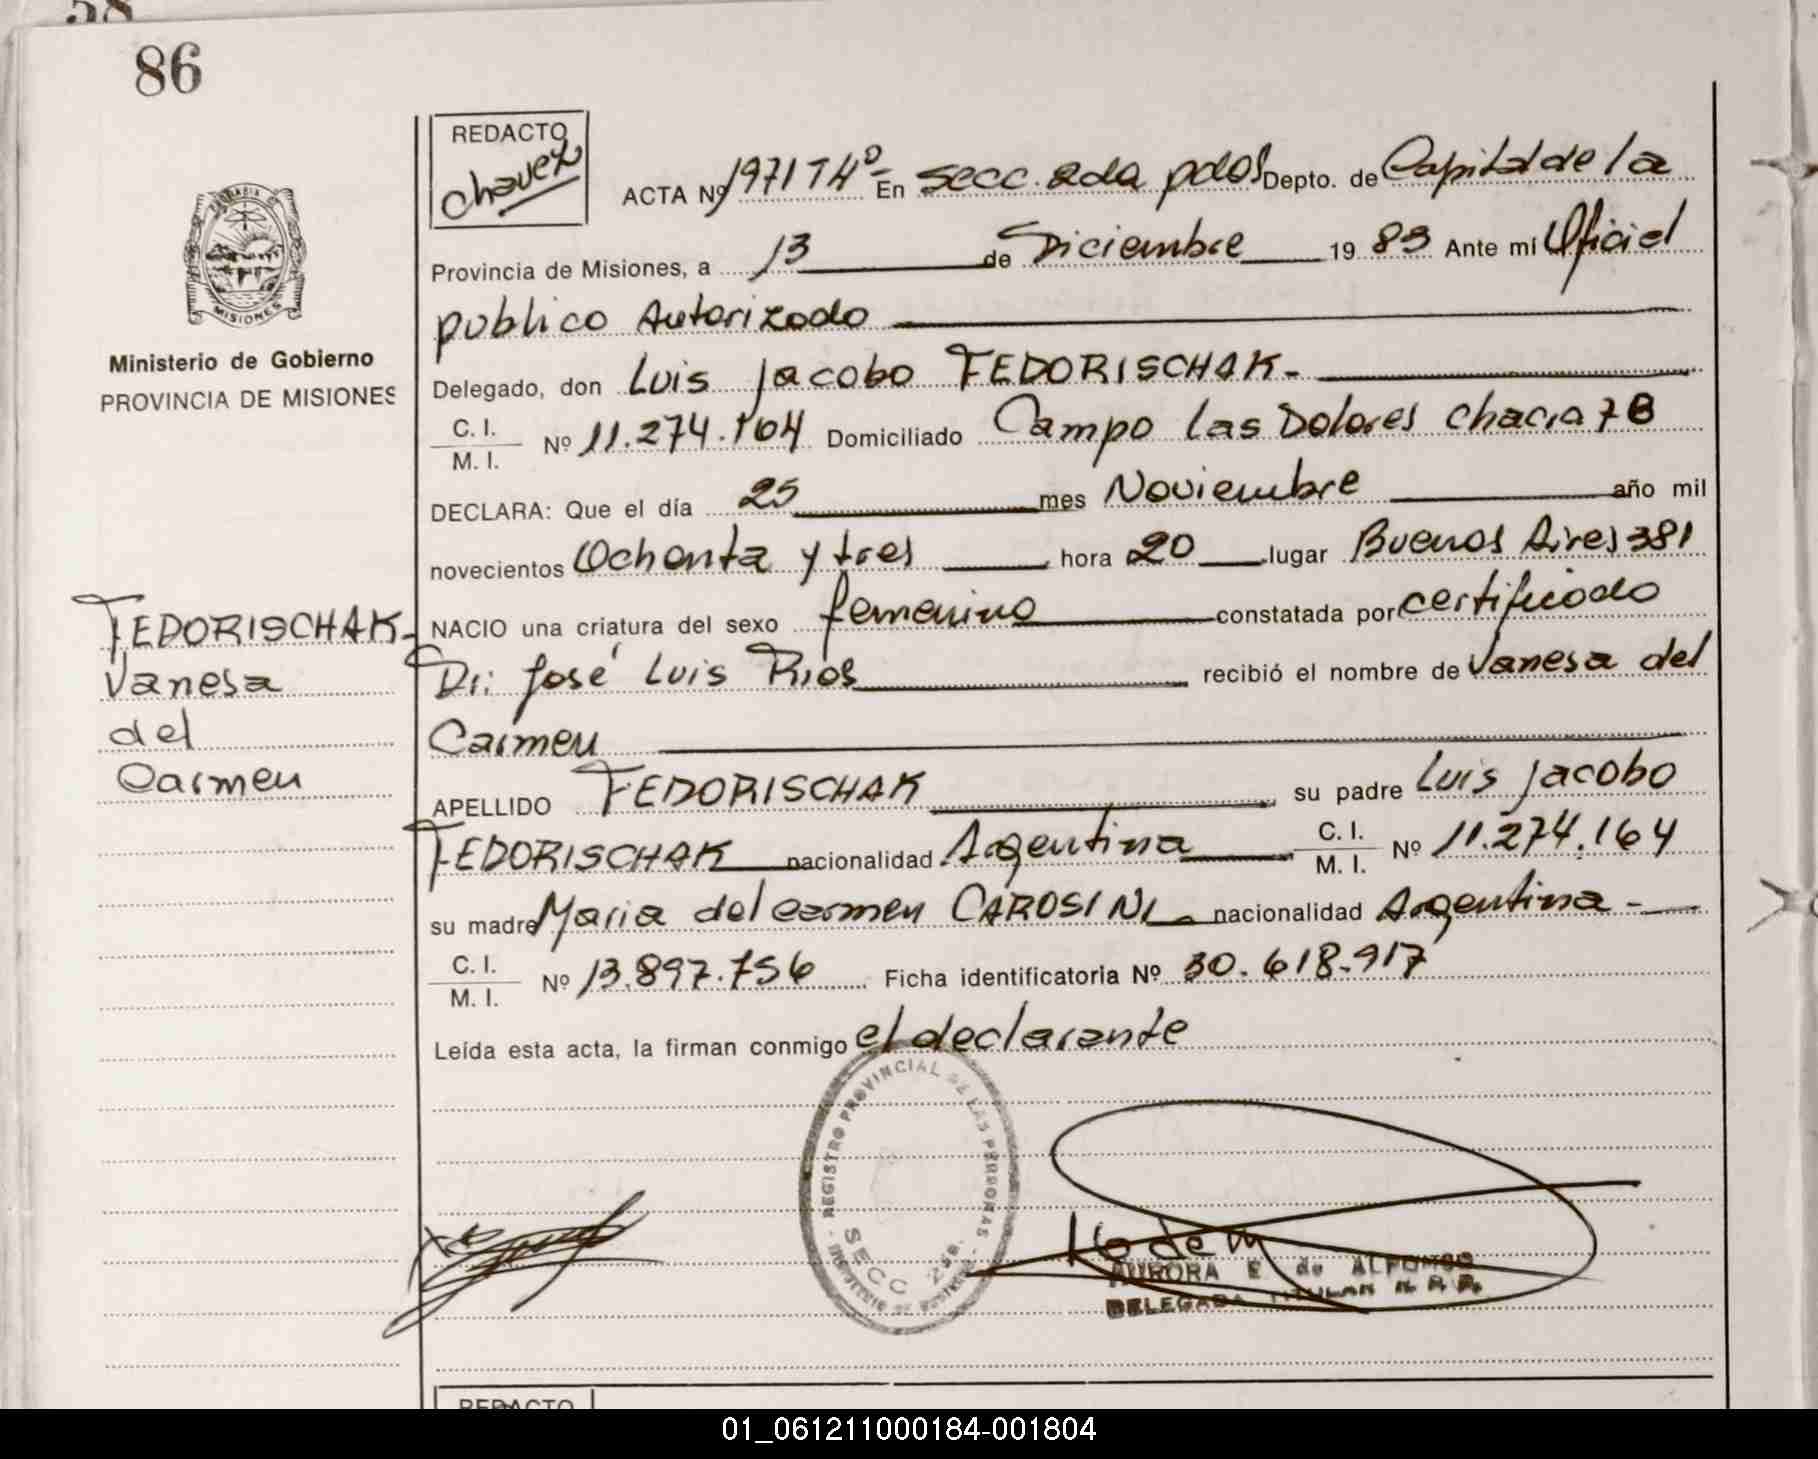 58
86
REDACTO
chavez
ACTA Nº 1971 Tº 4º- En secc. 2da pdas Depto. de Capital de la
Provincia de Misiones, a 13 de Diciembre 1983 Ante mí Oficial
publico Autorizado
Delegado, don Luis Jacobo FEDORISCHAK-
C. I.
M. I. Nº 11.274.164 Domiciliado Campo Las Dolores chacra 78
DECLARA: Que el día 25 mes Noviembre año mil
novecientos Ochenta y tres hora 20 lugar Buenos Aires 381
NACIO una criatura del sexo femenino constatada por certificado
Dr: José Luis Rios recibió el nombre de Vanesa del
Carmen
APELLIDO FEDORISCHAK su padre Luis Jacobo
FEDORISCHAK nacionalidad Argentina C. I.
M. I. Nº 11.274.164
su madre Maria del carmen CAROSINI nacionalidad Argentina -
C. I.
M. I. Nº 13.897.756 Ficha identificatoria Nº 30.618.917
Leída esta acta, la firman conmigo el declarante
MISIONES
Ministerio de Gobierno
PROVINCIA DE MISIONES
FEDORISCHAK-
Vanesa
del
Carmen
REGISTRO PROVINCIAL DE LAS PERSONAS
SECC 2da.
AURORA E. de ALFONSO
DELEGADA TITULAR
REDACTO
01_061211000184-001804